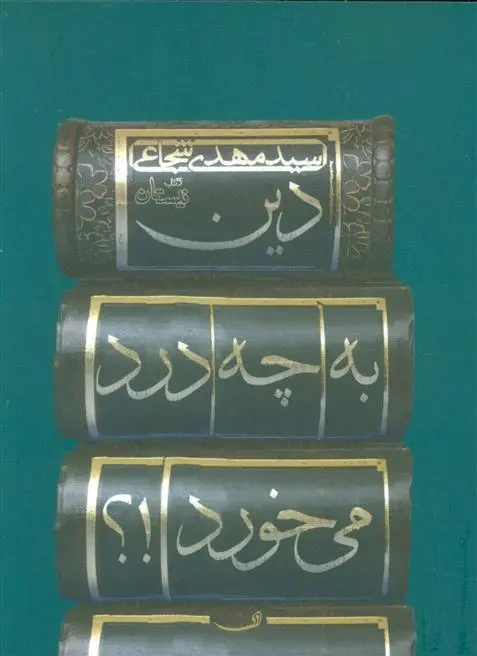 سید مهدی شجاعی
کتاب
نیستان
دین
به چه درد
می خورد
!؟